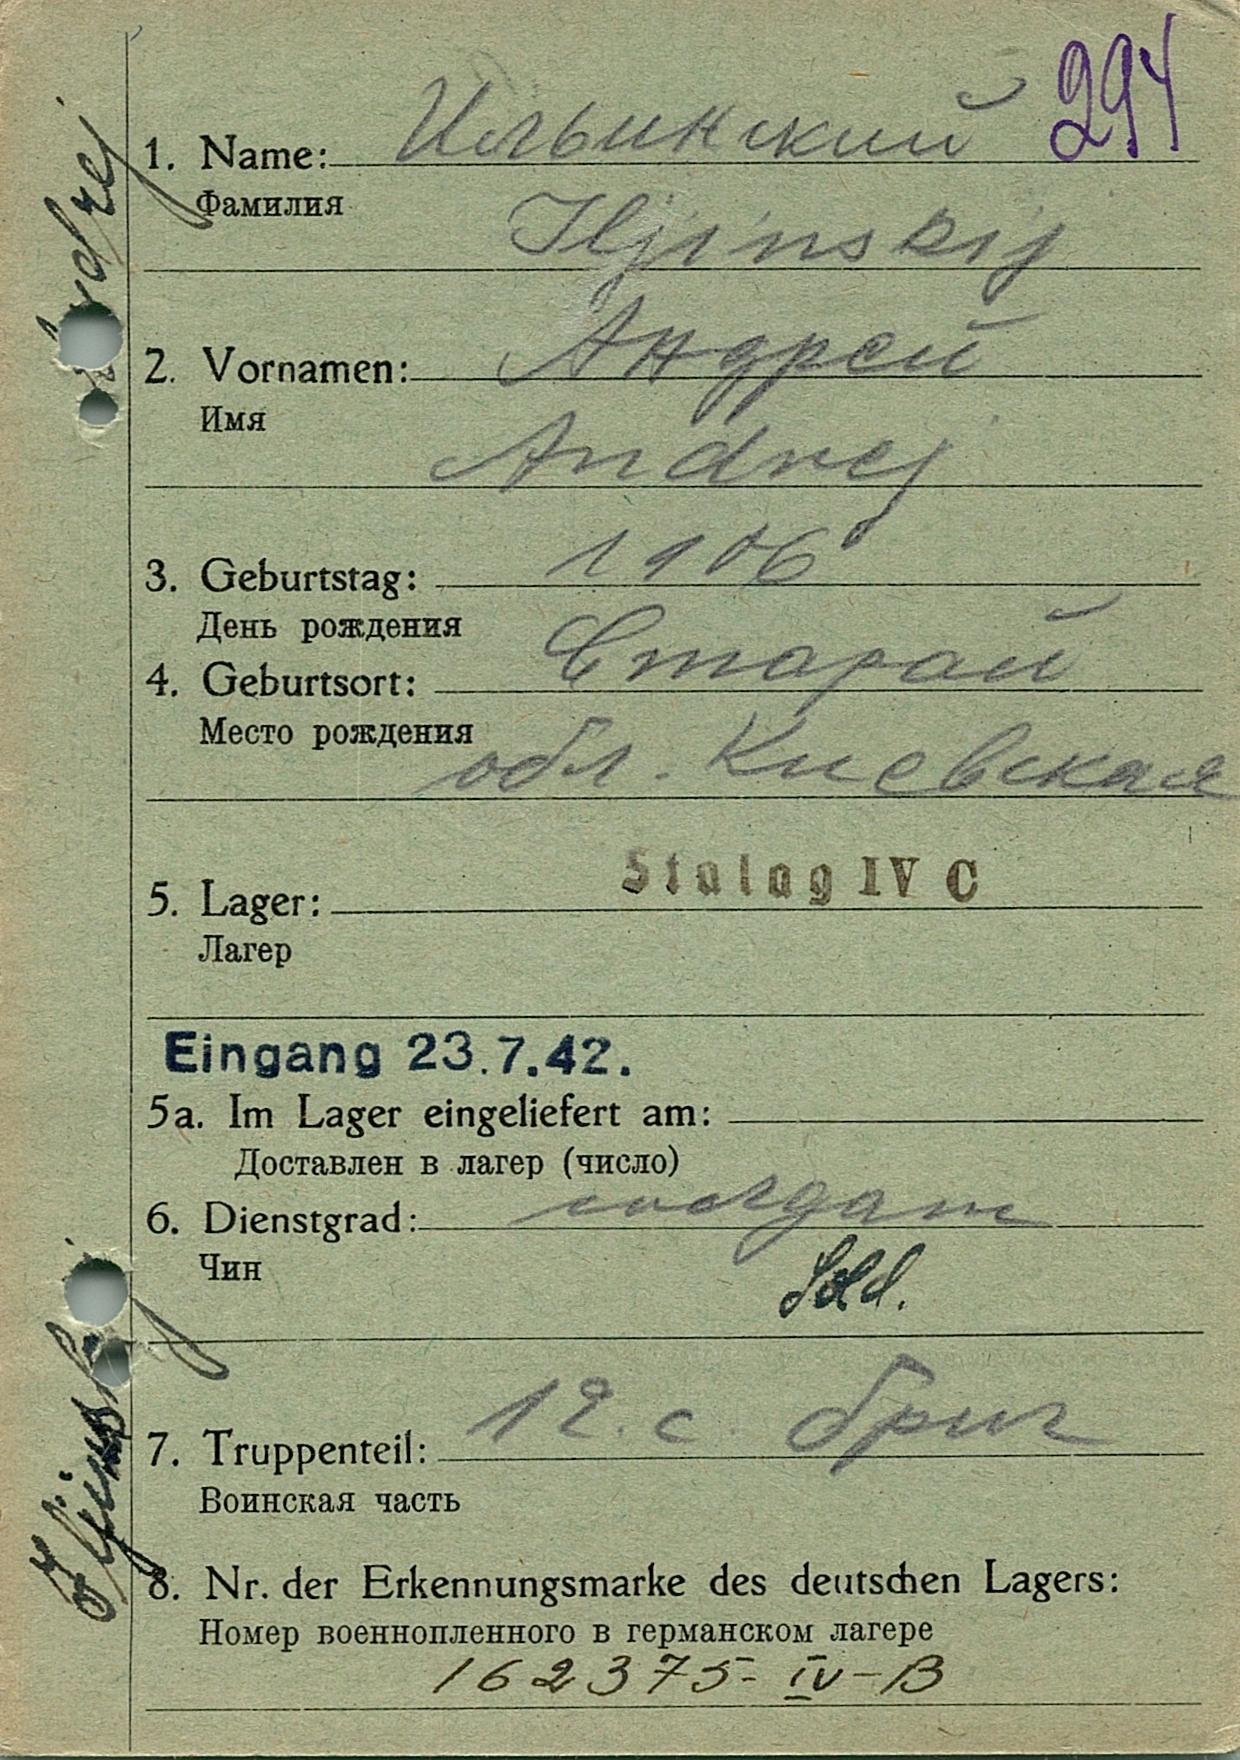 294
1. Name: Ильинский
Фамилия
Iljinskij
2. Vornamen: Андрей
Имя
Andrej
3. Geburtstag: 1906
День рождения
4. Geburtsort: Старай
Место рождения обл. Киевская
5. Lager: Stalag IV C
Лагер
Eingang 23.7.42.
5a. Im Lager eingeliefert am:
Доставлен в лагер (число)
6. Dienstgrad: солдат
Чин
Sold.
7. Truppenteil: 12. с. бриг
Воинская часть
8. Nr. der Erkennungsmarke des deutschen Lagers:
Номер военнопленного в германском лагере
162375- IV-B
Iljinskij Andrej